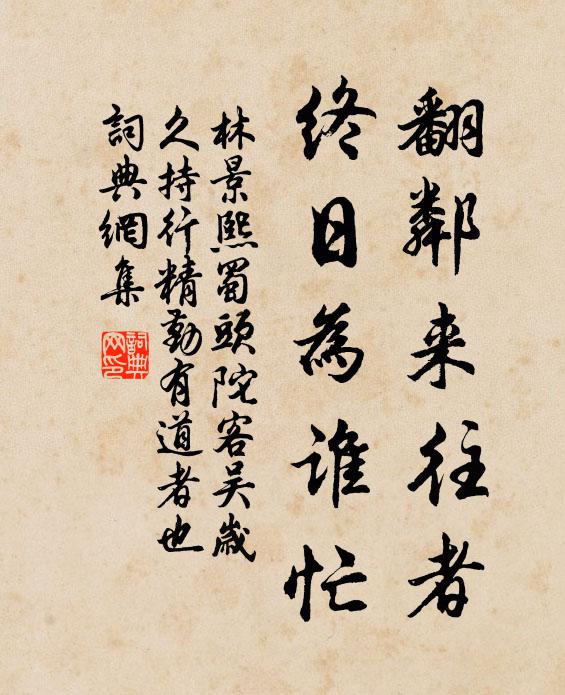 翻鄰来往者
終日為誰忙
林景熙蜀頭陀客吴歲
久持行精勤有道者也
詞典網集
詞典网印